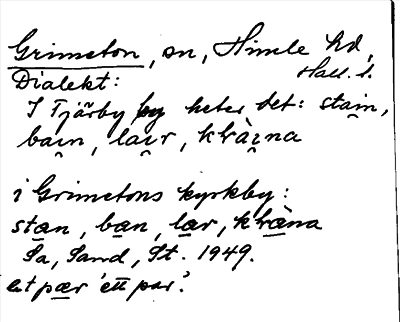 Grimeton, sn, Himle hd,
Hall. l.
Dialekt:
I Tjärby by heter det: stai̯n,
bai̯n, lai̯r, krài̯na
i Grimetons kyrkby:
stæn, bæn, lær, kræ̀na
Sa, Sand, St. 1949.
et pær 'ett par'.